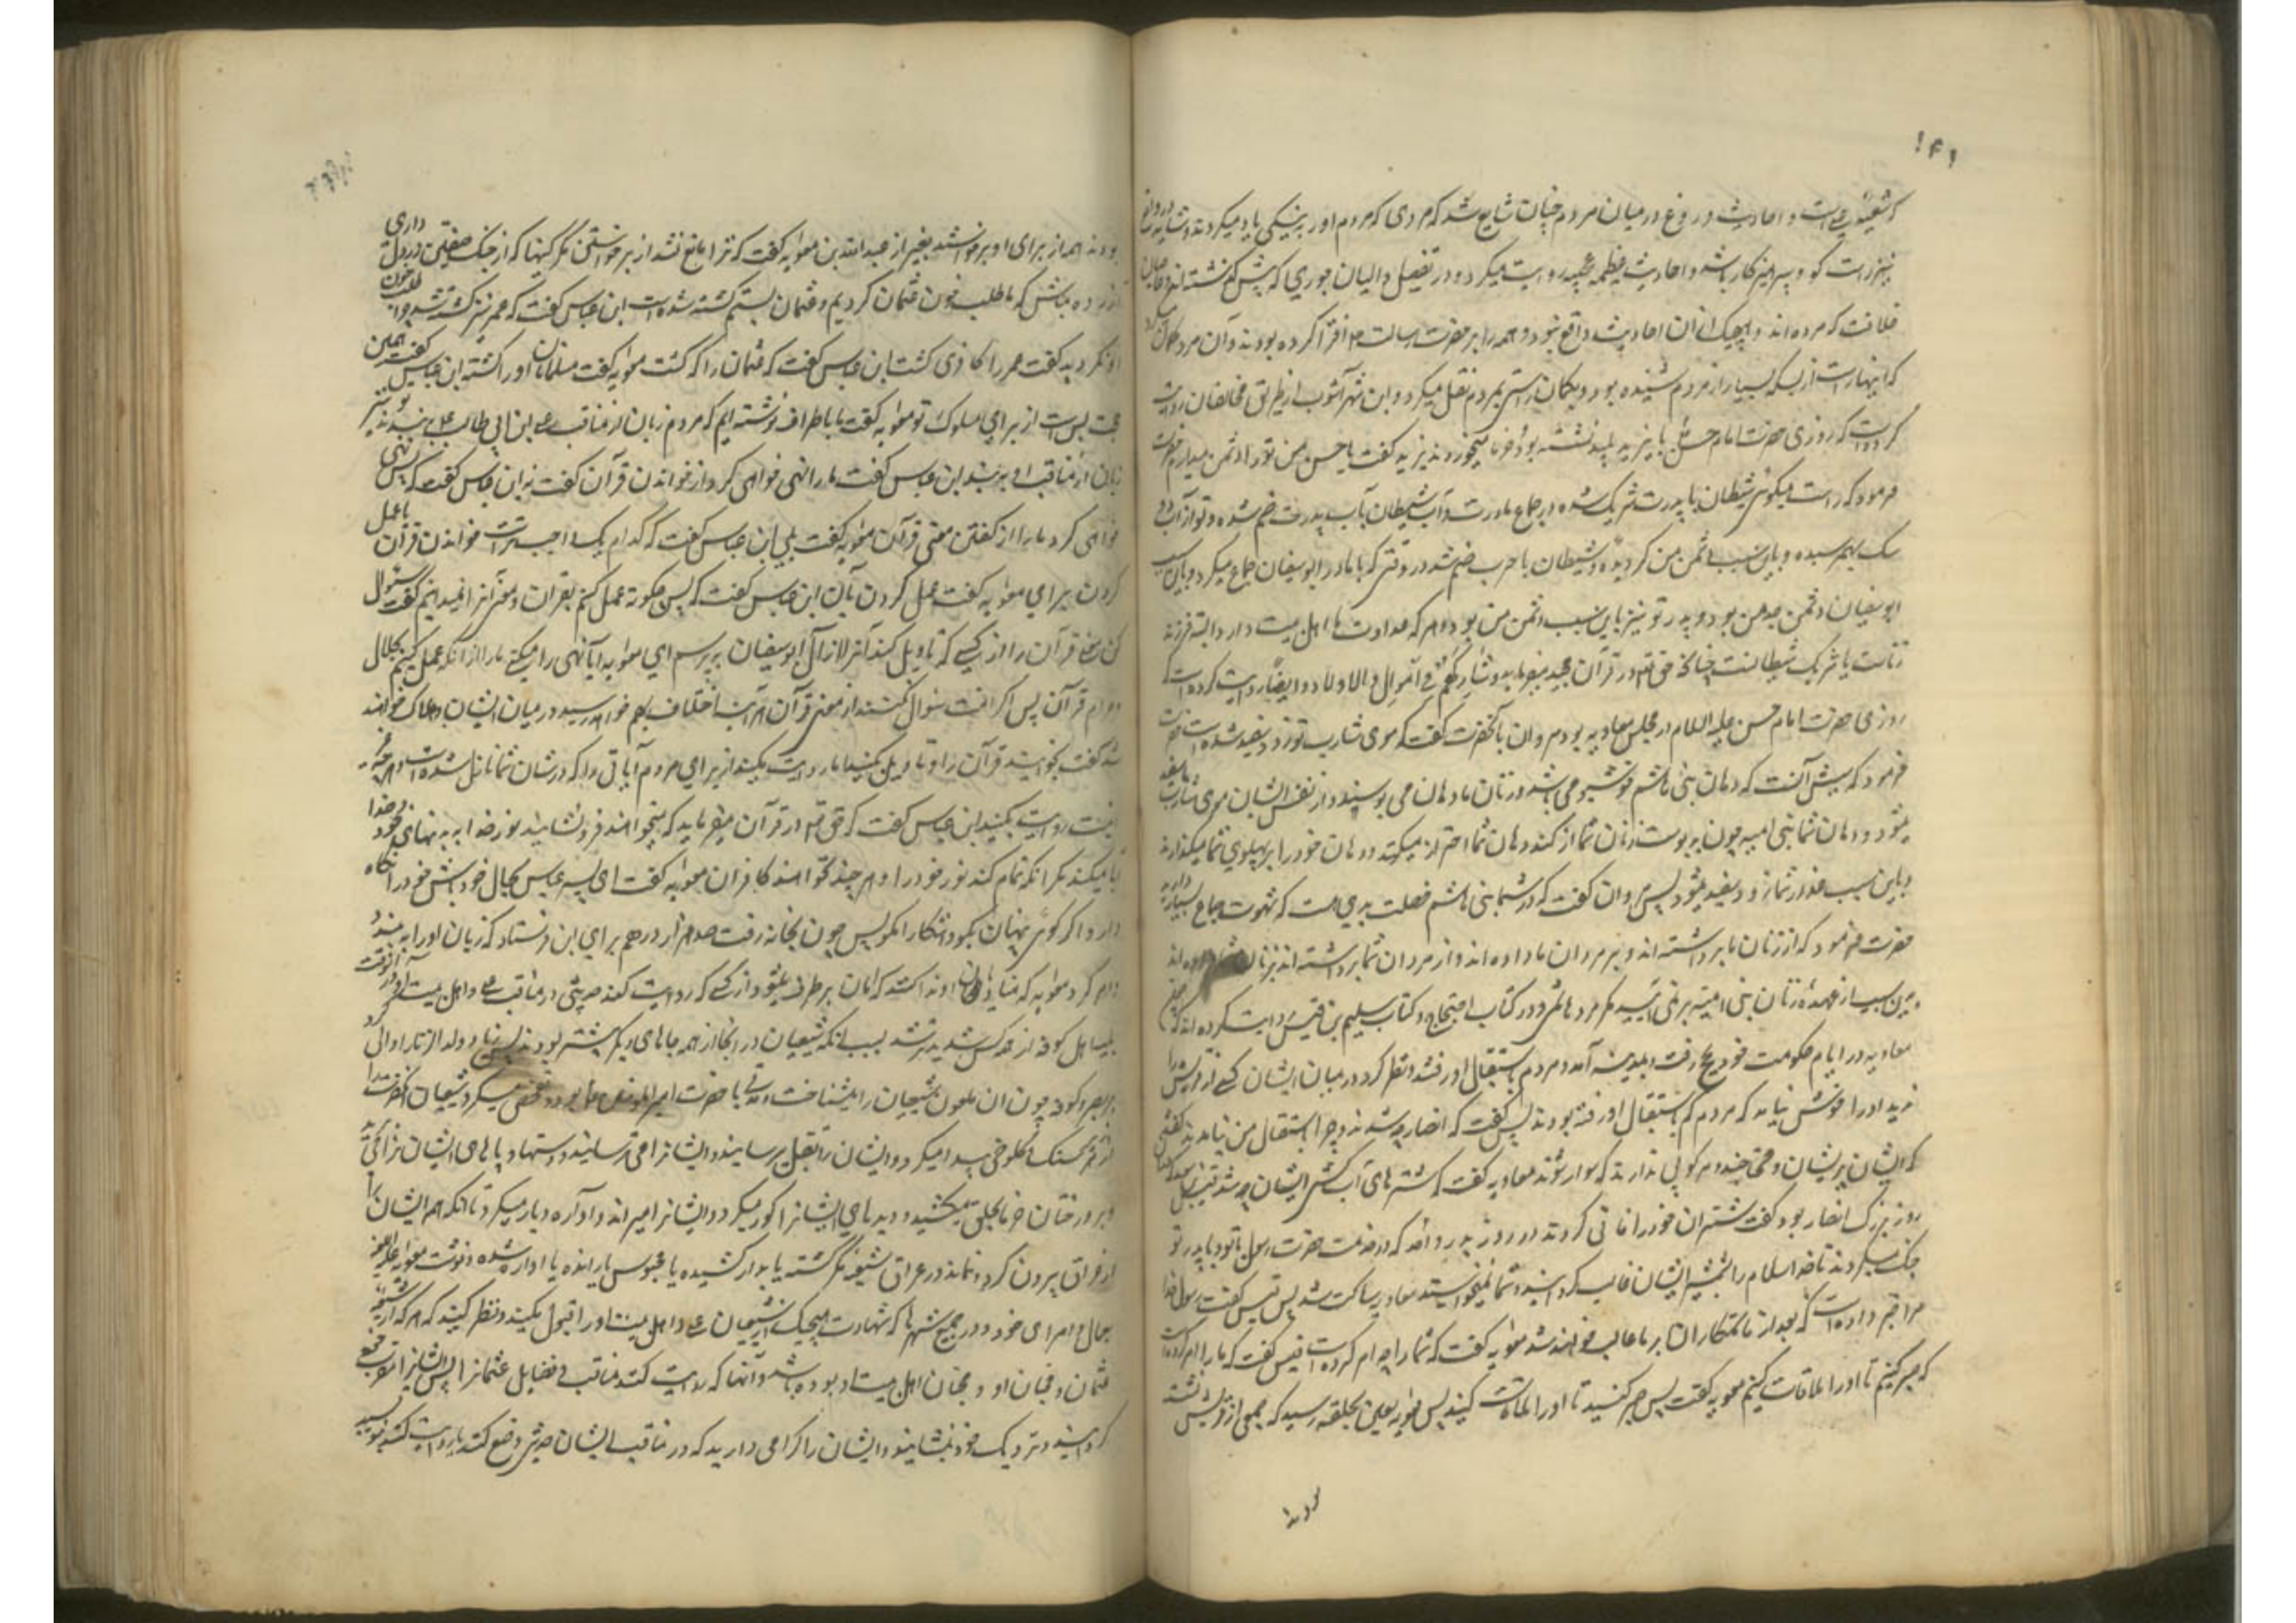 ۱۴۱
که شیعهٔ علی است و احادیث دروغ در میان مردم چنان شایع شد که مردی که مردم او را به نیکی یاد میکردند و شاید در واقع
نیز راست گو و پرهیزکار باشد و احادیث عظیمه عجیبه روایت میکرد در تفضیل والیان جوری که پیش گذشته اند
خلافت کرده اند و هیچیک از آن احادیث واقع نبود و همه را بر حضرت رسالت افترا کرده بودند و آن مرد گمان میکرد
که اینها راست از بسکه بسیار از مردم شنیده بود و بگمان راستی بمردم نقل میکرد و ابن شهرآشوب از طریق مخالفان روایت
کرده است که روزی حضرت امام حسن با یزید پلید نشسته بود و خرما میخوردند یزید گفت یا حسن من تو را دشمن میدارم حضرت
فرمود که راست میگوئی شیطان با پدرت شریک شده در جماع مادرت و آب شیطان با آب پدرت ضم شده و تو از آن دو
بهم رسیده و باین سبب دشمن من گردیده و شیطان با حرب ضم شد در وقتی که با مادر ابوسفیان جماع میکرد و باین سبب
ابوسفیان دشمن جد من بود و پدر تو نیز باین سبب دشمن من بود و هر که عداوت ما اهل بیت دارد البته فرزند
زناست یا شریک شیطانست چنانکه حق تعالی در قرآن مجید میفرماید وشارکهم فی الاموال والاولاد و ایضا روایت کرده است که
روزی حضرت امام حسن علیه السلام در مجلس معاویه بود مروان بآنحضرت گفت که موی شارب تو زود سفید شده است حضرت
فرمود که سببش آنست که دهان بنی هاشم خوشبو می باشد و زنان ما دهان می بوسند و از نفس ایشان موی شارب ما سفید
میشود و دهان شما بنی امیه چون بدبوست زنان شما از گند دهان شما احتراز میکنند و دهان خود را بر پهلوی شما میگذارند
و باین سبب عذار شما زود سفید میشود پس مروان گفت که در شما بنی هاشم خصلت بدی هست که شهوت جماع بسیار دارید
حضرت فرمود که از زنان ما برداشته اند و بر مردان ما داده اند و از مردان شما برداشته اند و بر زنان شما داده اند
و باین سبب از عهدهٔ زنان بنی امیه بر نمی آید مگر مرد هاشمی و در کتاب احتجاج و کتاب سلیم بن قیس روایت کرده اند که چون
معاویه در ایام حکومت خود بحج رفت و بمدینه آمد و مردم باستقبال او رفتند و نظر کرد در میان ایشان کسی از قریش را
ندید او را خوش نیامد که مردم کم باستقبال او رفته بودند پس گفت که انصار چه شدند و چرا باستقبال من نیامدند گفتند
که ایشان پریشان و محتاجند و مرکوبی ندارند که سوار شوند معاویه گفت که شترهای آب کش ایشان چه شد قیس بن سعد که آن
روز بزرگ انصار بود گفت شتران خود را فانی کردند در روز بدر و احد که در خدمت حضرت رسول با تو و با پدر تو
جنگ میکردند تا خدا اسلام را بشمشیر ایشان غالب گردانید و شما نمیخواستید معاویه ساکت شد پس قیس گفت رسول خدا
مرا خبر داده است که بعد از ما ستمکاران بر ما غالب خواهند شد معویه گفت که شما را چه امر کرده است قیس گفت که ما را امر کرده است
که صبر کنیم تا او را ملاقات کنیم معویه گفت پس صبر کنید تا او را ملاقات کنید پس معویه لعین بحلقه رسید که جمعی از قریش نشسته
بودند
بودند همه از برای او برخواستند بغیر از عبد الله بن عباس معویه گفت که ترا مانع نشد از برخواستن مگر کینها که از جنگ صفین در دل داری
آزرده مباش که ما طلب خون عثمان کردیم و عثمان بستم کشته شده است ابن عباس گفت که عمر نیز کشته شد چرا طلب خون
او نکردید گفت عمر را کافری کشت ابن عباس گفت که عثمان را که کشت معویه گفت مسلمانان او را کشتند ابن عباس گفت همین
حجت بس است از برای سلوک تو معویه گفت ما باطراف نوشته ایم که مردم زبان از مناقب علی ابن ابی طالب ببندند تو نیز
زبان از مناقب او ببند ابن عباس گفت ما را نهی خواهی کرد از خواندن قرآن گفت نه ابن عباس گفت که پس نهی
خواهی کرد ما را از گفتن معنی قرآن معویه گفت بلی ابن عباس گفت که کدام یک واجب تر است خواندن قرآن یا عمل
کردن بر آن معویه گفت عمل کردن بآن ابن عباس گفت که پس چگونه عمل کنیم بقرآن و معنی آنرا نمیدانیم گفت سئوال
کن معنی قرآن را از کسی که تاویل کند آنرا از آل ابوسفیان بپرسم ای معویه آیا نهی ما را میکنی از آنکه عمل کنیم بحلال
و حرام قرآن پس اگر امت سئوال نکنند از معنی قرآن هر آینه اختلاف بهم خواهد رسید در میان ایشان و هلاک خواهند
شد گفت بخوانید قرآن را و تاویل نکنید اما روایت مکنید از برای مردم آیاتی را که در شان شما نازل شده است و هر چه غیر
اینست روایت بکنید ابن عباس گفت که حق تعالی در قرآن میفرماید که میخواهند فرو نشانند نور خدا به دهنهای خود و خدا
ابا میکند مگر آنکه تمام کند نور خود را و هر چند نخواهند کافران معویه گفت ای پسر عباس بحال خود باش و خود را نگاه
دار و اگر گوئی پنهان بگو و آشکارا مگو پس چون بخانه رفت صد هزار درهم برای ابن عباس فرستاد که زبان او را ببندد
و امر کرد معویه که منادیان او ندا کنند که امان برطرف میشود از کسی که روایت کند حدیثی در مناقب علی و اهل بیت او و در آنوقت
بلیه اهل کوفه از همه کس شدیدتر شد بسبب آنکه شیعیان در آنجا از همه جاهای دیگر بیشتر بودند پس زیاد ولد الزنا را والی کرد
بر بصره و کوفه چون آن ملعون شیعیان را میشناخت مدتی با حضرت امیر المومنین بود و تفحص میکرد شیعیان آنحضرت را
از زیر سنگ و کلوخ پیدا میکرد و ایشان را بقتل میرسانید و ایشانرا می ترسانید و دستها و پاهای ایشان را
و بر درختان خرما بحلق میکشید و دیدهای ایشانرا کور میکرد و ایشانرا میراند و آواره دیار میکرد تا آنکه همه ایشان را
از عراق بیرون کرد و نماند در عراق شیعه مگر کشته یا بدار کشیده یا محبوس یا رانده یا آواره شده و نوشت معویه
بعمال و امرای خود در جمیع شهرها که شهادت هیچیک از شیعیان علی و اهل بیت او را قبول مکنید و نظر کنید که هر که از شیعه
عثمان و محبان او و محبان اهل بیت او بوده باشد و آنها که روایت کنند مناقب و فضایل عثمانرا پس ایشانرا مقرب خود
گردانید و نزدیک خود بنشانید و ایشان را گرامی دارید که در مناقب ایشان حدیثی وضع کند یا روایت کند بنویسید